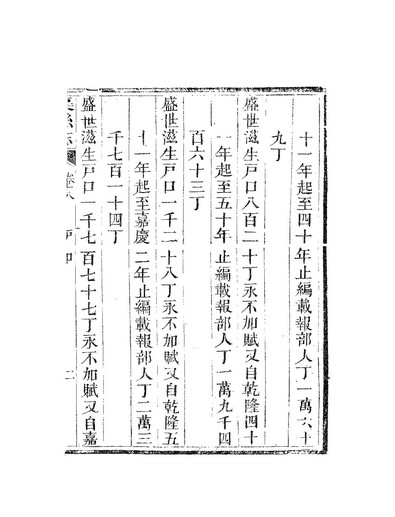 十一年起至四十年止編載報部人丁一萬六十
九丁
盛世滋生戸口八百二十丁永不加賦又自乾隆四十
一年起至五十年止編載報部人丁一萬九千四
百六十三丁
盛世滋生戸口一千一十八丁永不加賦又自乾隆五
十一年起至嘉慶二年止編載報部人丁二萬三
千七百一十四丁
盛世滋生戸口一千七百七十七丁永不加賦又自嘉
縣志 卷八 二